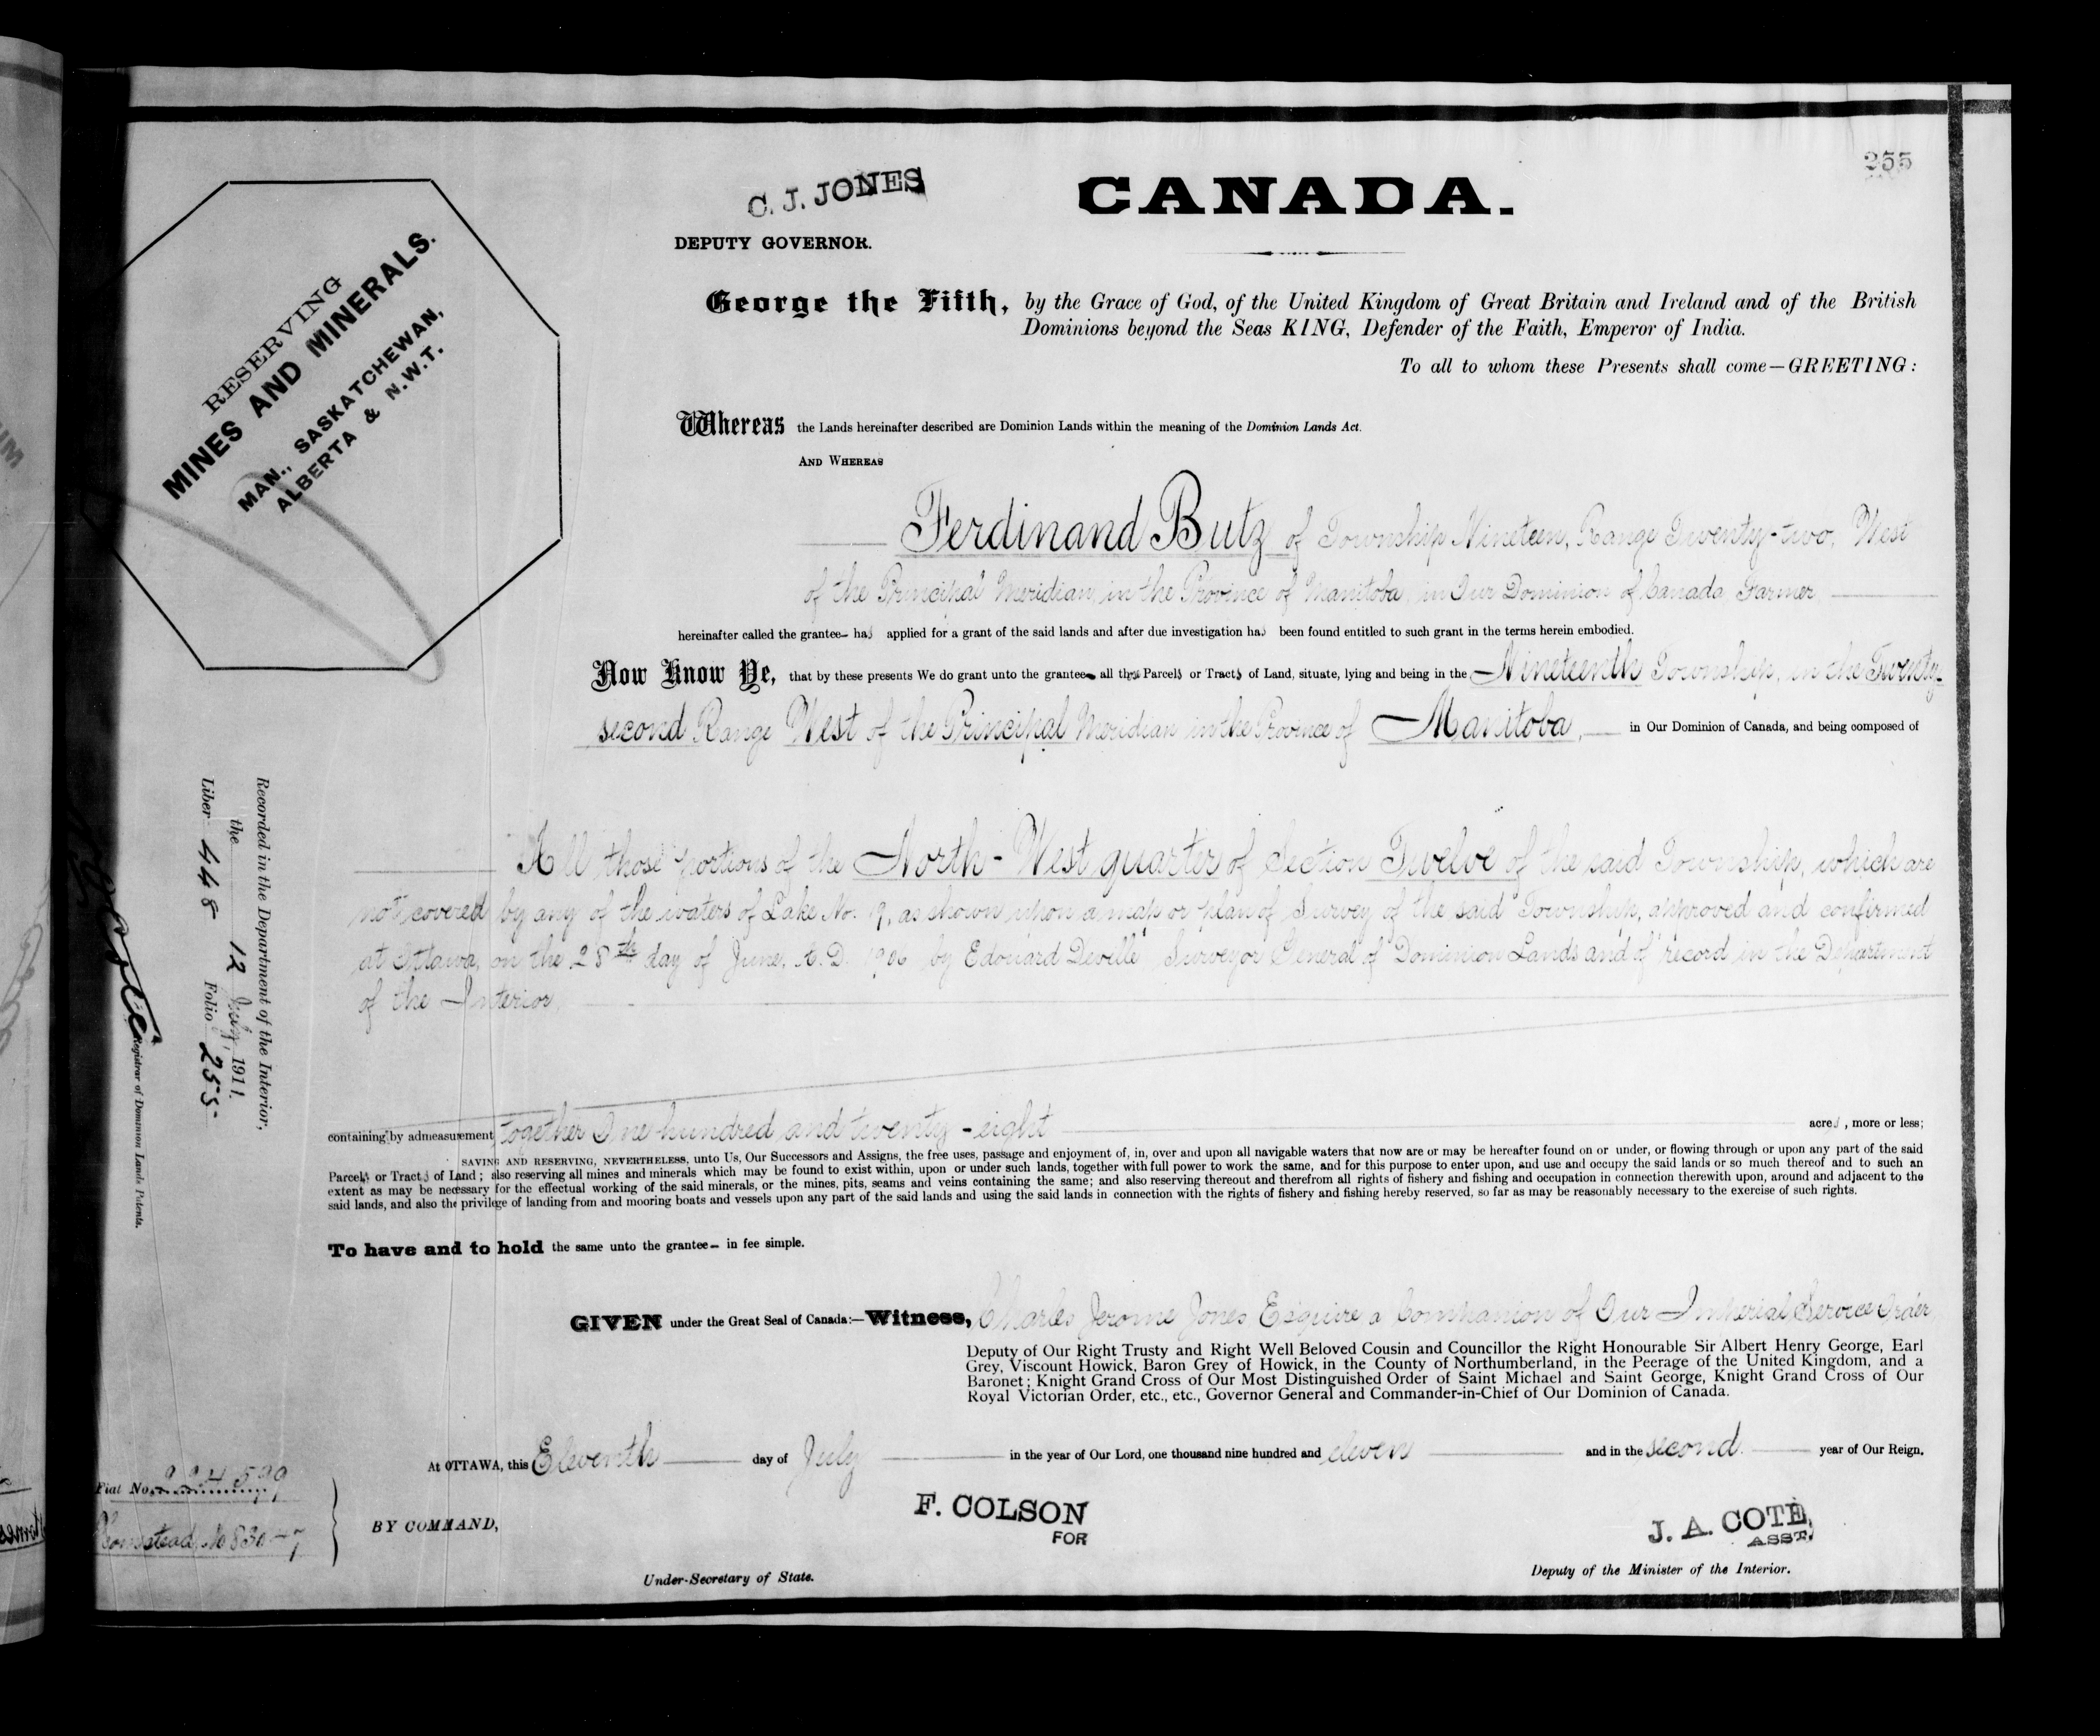 255
C. J. JONES
DEPUTY GOVERNOR.
CANADA.
RESERVING
MINES AND MINERALS.
MAN., SASKATCHEWAN,
ALBERTA & N.W.T.
George the Fifth, by the Grace of God, of the United Kingdom of Great Britain and Ireland and of the British
Dominions beyond the Seas KING, Defender of the Faith, Emperor of India.
To all to whom these Presents shall come—GREETING:
Whereas the Lands hereinafter described are Dominion Lands within the meaning of the Dominion Lands Act.
AND WHEREAS
Ferdinand Butz of Township Nineteen, Range Twenty-two, West
of the Principal Meridian, in the Province of Manitoba, in Our Dominion of Canada, Farmer,
hereinafter called the grantee— has applied for a grant of the said lands and after due investigation has been found entitled to such grant in the terms herein embodied.
Now Know Ye, that by these presents We do grant unto the grantee— all those Parcels or Tracts of Land, situate, lying and being in the Nineteenth Township, in the Twenty-
second Range West of the Principal Meridian in the Province of Manitoba, in Our Dominion of Canada, and being composed of
All those portions of the North-West quarter of Section Twelve of the said Township, which are
not covered by any of the waters of Lake No. 19, as shown upon a map or plan of Survey of the said Township, approved and confirmed
at Ottawa, on the 28th day of June, A.D. 1906 by Edouard Deville Surveyor General of Dominion Lands and of record in the Department
of the Interior,
containing by admeasurement together One hundred and twenty-eight acres, more or less;
SAVING AND RESERVING, NEVERTHELESS, unto Us, Our Successors and Assigns, the free uses, passage and enjoyment of, in, over and upon all navigable waters that now are or may be hereafter found on or under, or flowing through or upon any part of the said
Parcels or Tracts of Land; also reserving all mines and minerals which may be found to exist within, upon or under such lands, together with full power to work the same, and for this purpose to enter upon, and use and occupy the said lands or so much thereof and to such an
extent as may be necessary for the effectual working of the said minerals, or the mines, pits, seams and veins containing the same; and also reserving thereout and therefrom all rights of fishery and fishing and occupation in connection therewith upon, around and adjacent to the
said lands, and also the privilege of landing from and mooring boats and vessels upon any part of the said lands and using the said lands in connection with the rights of fishery and fishing hereby reserved, so far as may be reasonably necessary to the exercise of such rights.
To have and to hold the same unto the grantee— in fee simple.
GIVEN under the Great Seal of Canada:—Witness, Charles Jerome Jones, Esquire a Companion of Our Imperial Service Order,
Deputy of Our Right Trusty and Right Well Beloved Cousin and Councillor the Right Honourable Sir Albert Henry George, Earl
Grey, Viscount Howick, Baron Grey of Howick, in the County of Northumberland, in the Peerage of the United Kingdom, and a
Baronet; Knight Grand Cross of Our Most Distinguished Order of Saint Michael and Saint George, Knight Grand Cross of Our
Royal Victorian Order, etc., etc., Governor General and Commander-in-Chief of Our Dominion of Canada.
At OTTAWA, this Eleventh day of July in the year of Our Lord, one thousand nine hundred and eleven and in the second year of Our Reign.
BY COMMAND,
F. COLSON
FOR
Under-Secretary of State.
J. A. COTE,
ASST.
Deputy of the Minister of the Interior.
Recorded in the Department of the Interior,
the 12 July, 1911.
Liber 448 Folio 255
Registrar of Dominion Lands Patents.
Fiat No. 224599
Homestead, No